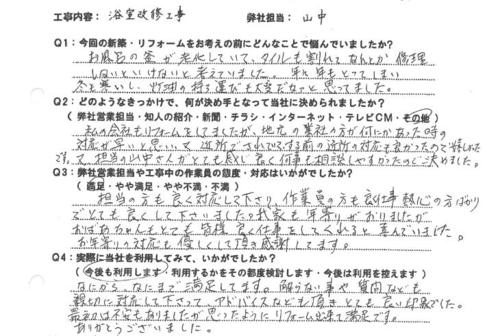 工事内容： 浴室改修工事 弊社担当： 山中
Q1：今回の新築・リフォームをお考えの前にどんなことで悩んでいましたか？
お風呂の釜が老化していて、タイルも割れてなんとか修理
しないといけないと考えていました。年に年もとってしまい
冬は寒いし、灯油の持ち運びも大変だなっと思ってました。
Q2：どのようなきっかけで、何が決め手となって当社に決められましたか？
（弊社営業担当・知人の紹介・新聞・チラシ・インターネット・テレビCM・その他）
私の会社もリフォームをしてましたが、地元の業社の方が何にかあった時の
対応が早いと思いって、近所でされてて
て、担当の山中さんがとても感じ良く何事も相談しやすかったので決めました。
Q3：弊社営業担当や工事中の作業員の態度・対応はいかがでしたか？
（満足・やや満足・やや不満・不満）
担当の方も良く対応して下さり、作業員の方も良く仕事熱心の方ばかり
でとても良くして下さいました。我家も年寄りがおりましたが
おばあちゃんもとても皆様良く仕事をしてくれると喜んでいました。
お年寄りの対応も優しくして頂き感謝してます。
Q4：実際に当社を利用してみて、いかがでしたか？
（今後も利用します・利用するかその都度検討します・今後は利用を控えます）
なにからなにまで満足してます。細かい事や質問なども
親切に対応して下さって、アドバイスなども頂きとても良い印象でした。
最初は不安もありましたが思ったようにリフォーム出来て満足です。
ありがとうございました。